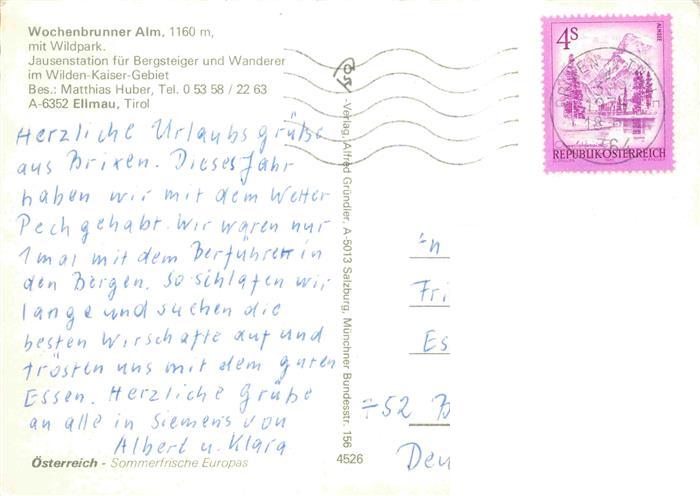 Wochenbrunner Alm, 1160 m,
mit Wildpark.
Jausenstation für Bergsteiger und Wanderer
im Wilden-Kaiser-Gebiet
Bes.: Matthias Huber, Tel. 0 53 58 / 22 63
A-6352 Ellmau, Tirol
Herzliche Urlaubsgrüße
aus Brixen. Dieses Jahr
haben wir mit dem Wetter
Pech gehabt. Wir waren nur
1 mal mit dem Berführer in
den Bergen. So schlafen wir
lange und suchen die
besten Wirschafte auf und
trösten uns mit dem guten
Essen. Herzliche Grüße
an alle in Siemens von
Albert u. Klara
Österreich - Sommerfrische Europas
-Verlag, Alfred Gründler, A-5013 Salzburg, Münchner Bundesstr. 156
4526
4 S
ALMSEE
REPUBLIK ÖSTERREICH
Fri
Es
52 B
Deu